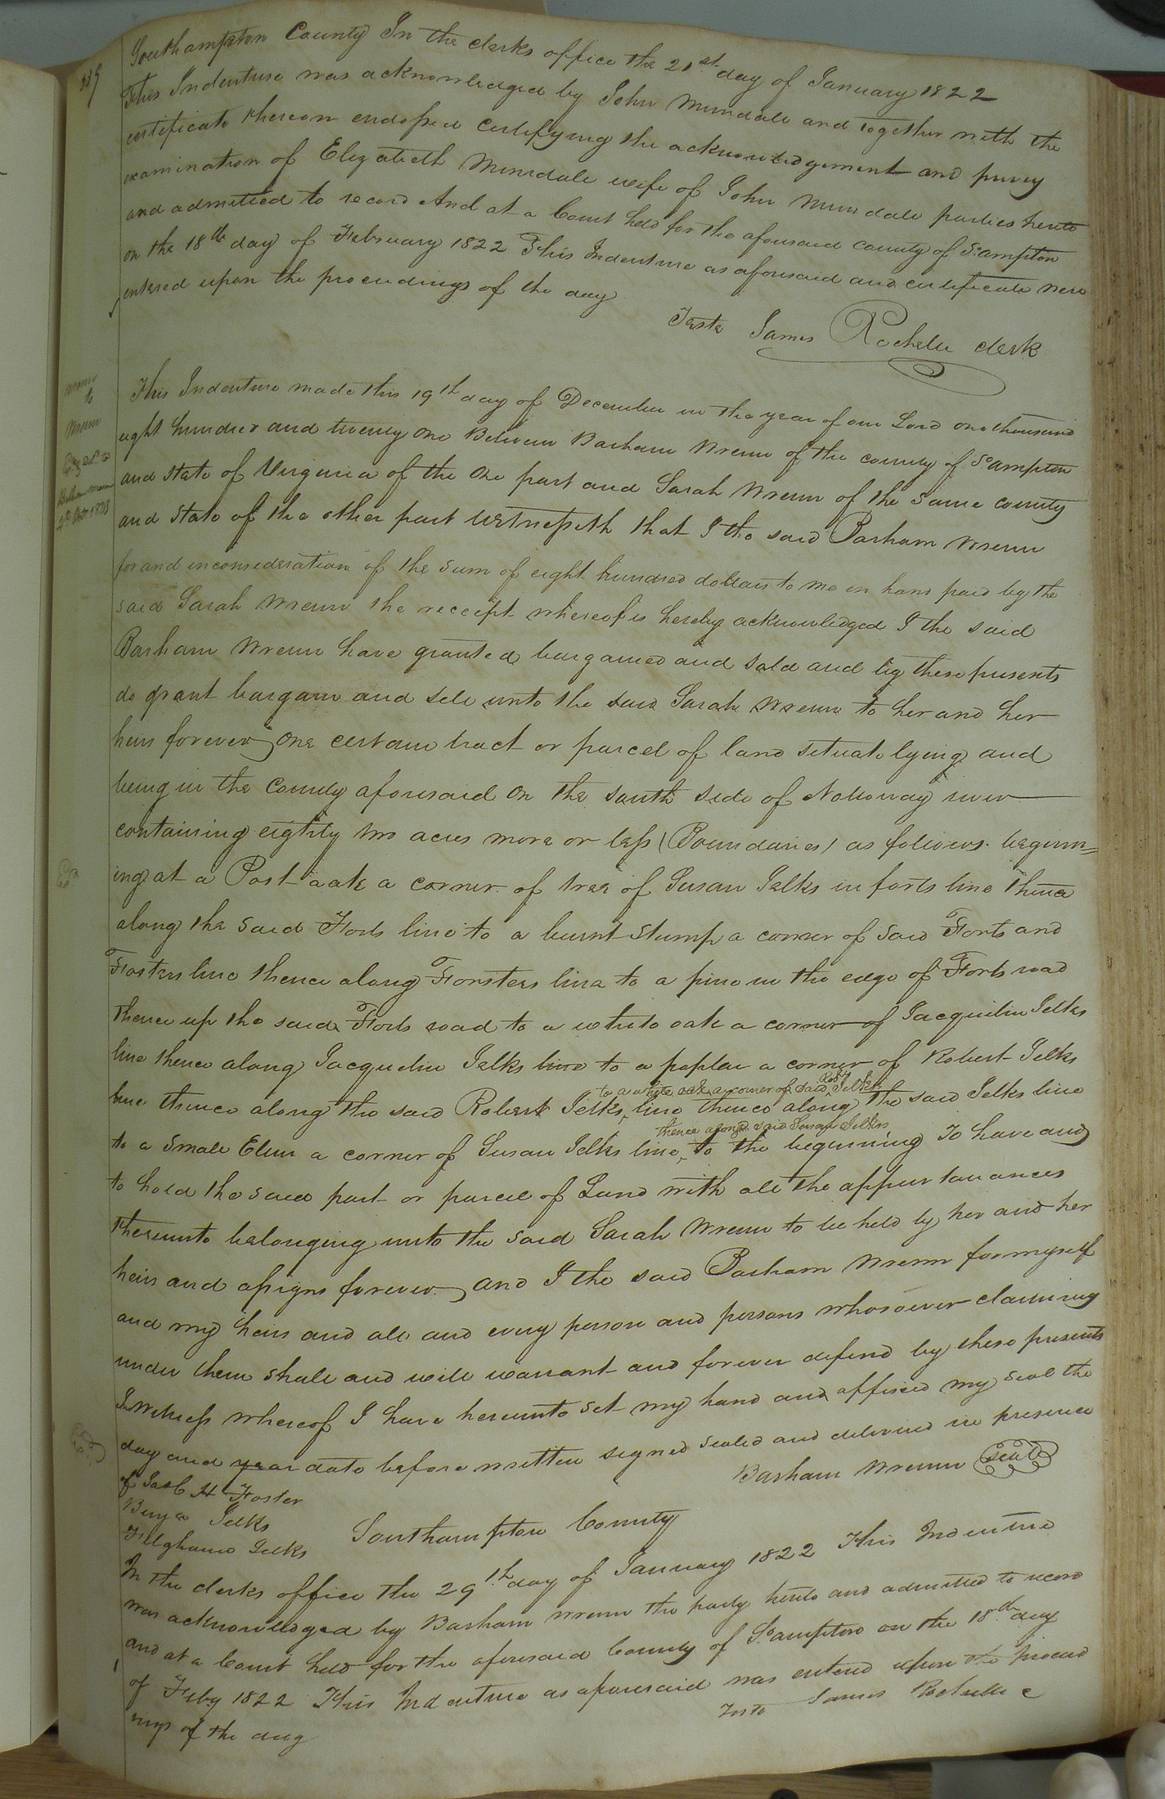 339
Southampton County In the clerks office the 21st day of January 1822
This Indenture was acknowledged by John Mundale and together with the
certificate thereon endorsed certifying the acknowledgement and privy
examination of Elizabeth Mundale wife of John Mundale parties hereto
and admitted to record And at a Court held for the aforesaid county of S.ampton
on the 18th day of February 1822 This Indenture as aforesaid and certificate were
entered upon the proceedings of the day
Teste James Rochelle clerk
Wrenn
to
Wrenn
This Indenture made this 19th day of December in the year of our Lord one thousand
eight hundred and twenty one Between Barham Wrenn of the county of S.ampton
and State of Virginia of the one part and Sarah Wrenn of the same county
and State of the other part Witnesseth that I the said Barham Wrenn
for and in consideration of the sum of eight hundred dollars to me in hand paid by the
said Sarah Wrenn the receipt whereof is hereby acknowledged I the said
Barham Wrenn have granted bargained and sold and by these presents
do grant bargain and sell unto the said Sarah Wrenn to her and her
heirs forever one certain tract or parcel of land situate lying and
being in the county aforesaid on the south side of Nottoway river
containing eighty two acres more or less (Boundaries) as follows. beginn=
ing at a Post oak a corner of tree of Susan Jelks in forts line thence
along the said Forts line to a burnt stump a corner of said Forts and
Fosters line thence along Forsters line to a pine in the edge of Forts road
thence up the said Forts road to a white oak a corner of Jacquilin Jelks
line thence along Jacquelin Jelks line to a poplar a corner of Robert Jelks
to a white oak a corner of said Robt Jelks
line thence along the said Robert Jelks line thence along the said Jelks line
thence along said Susan Jelks
to a small Elm a corner of Susan Jelks line, to the beginning To have and
to hold the said part or parcel of Land with all the appurtanances
thereunto belonging unto the said Sarah Wrenn to be held by her and her
heirs and assigns forever and I the said Barham Wrenn for myself
and my heirs and all and every person and persons whosoever claiming
under them shall and will warrant and forever defend by these presents
In witness whereof I have hereunto set my hand and affixed my seal the
day and year date before written signed sealed and delivered in presence
of Jas C H Foster
Barham Wrenn (seal)
Benja Jelks
Southampton County
In the clerks office the 29th day of January 1822 This Indenture
was acknowledged by Barham Wrenn the party hereto and admitted to record
and at a Court held for the aforesaid County of S.ampton on the 18th day
of Feby 1822 This Indenture as aforesaid was entered upon the proceed
ings of the day
Teste James Rochelle c